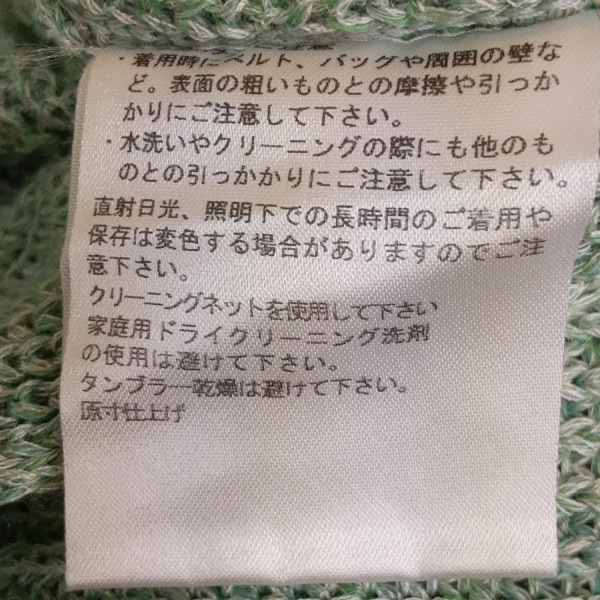 ・着用時にベルト、バッグや周囲の壁な
ど。表面の粗いものとの摩擦や引っか
かりにご注意して下さい。
・水洗いやクリーニングの際にも他のも
のとの引っかかりにご注意して下さい。
直射日光、照明下での長時間のご着用や
保存は変色する場合がありますのでご注
意下さい。
クリーニングネットを使用して下さい
家庭用ドライクリーニング洗剤
の使用は避けて下さい。
タンブラー乾燥は避けて下さい。
原寸仕上げ